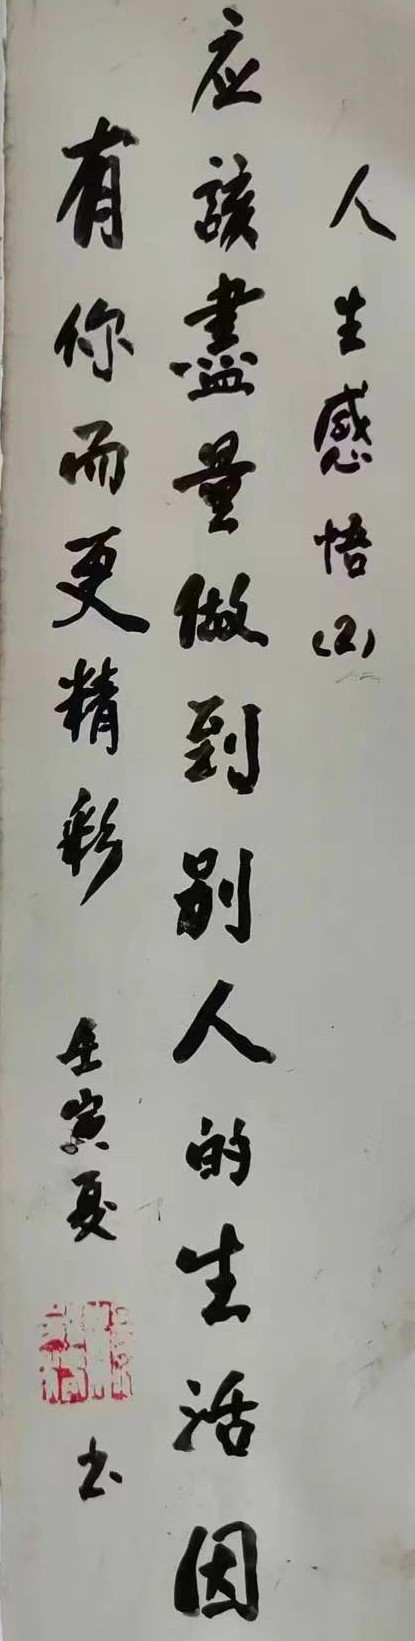 人生感悟(2)
应該盡量做到别人的生活因
有你而更精彩
壬寅夏
书